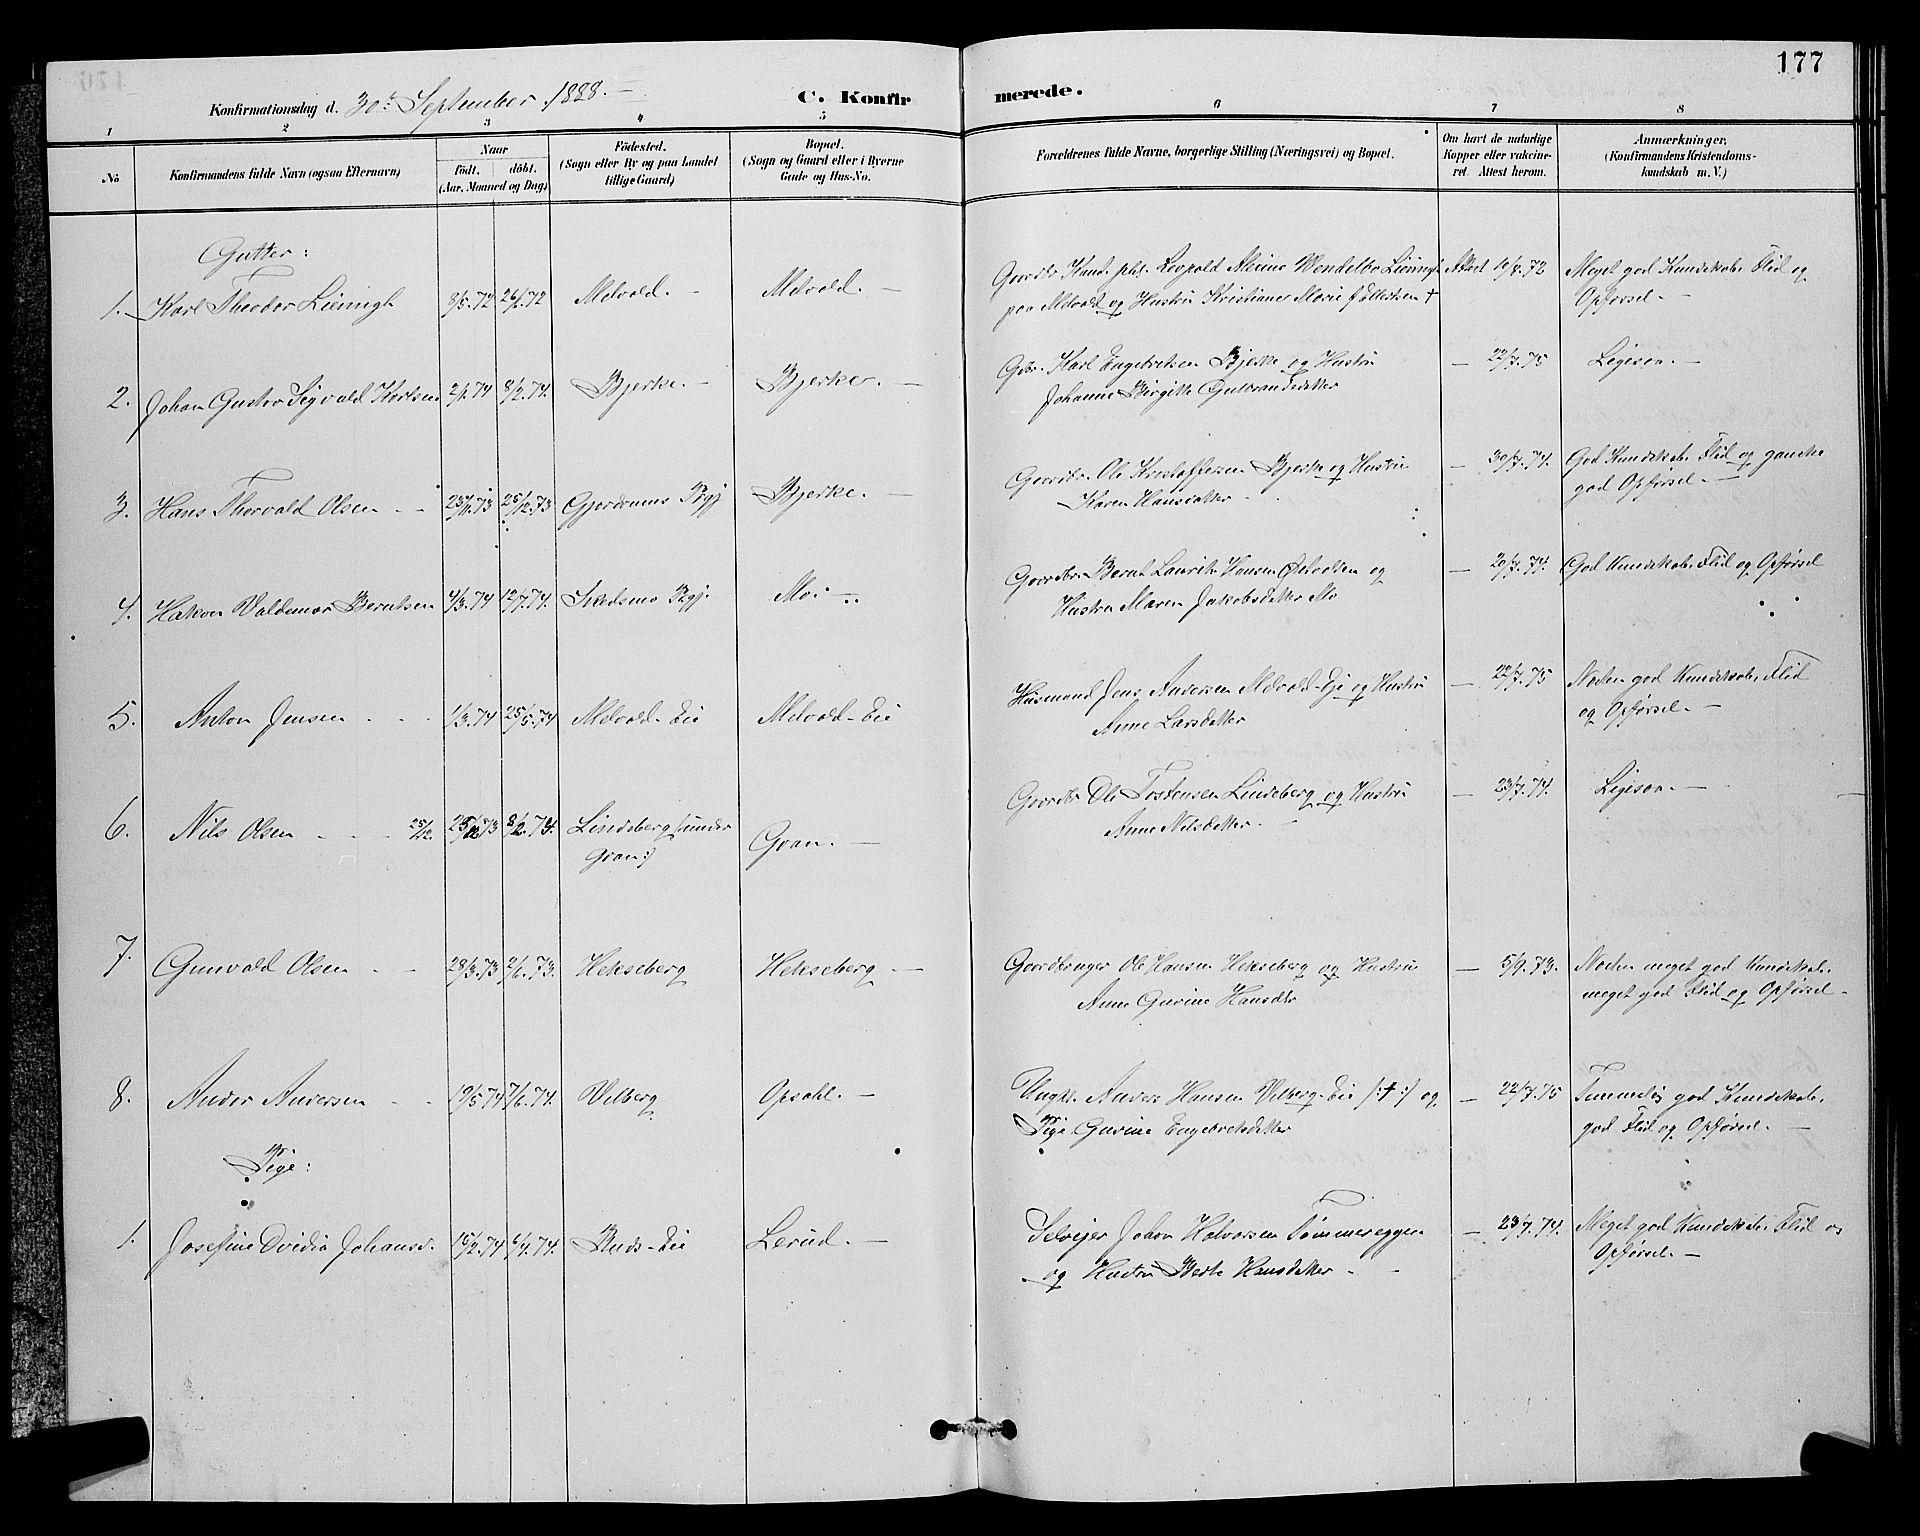 177
Konfirmationsdag d. 30te September 1888. —
C. Konfirmerede.
1 2 3 4 5 6 7 8
No
Konfirmandens fulde Navn (ogsaa Efternavn)
Naar
födt. döbt.
(Aar, Maaned og Dag)
Födested.
(Sogn eller By og paa Landet
tillige Gaard)
Bopæl.
(Sogn og Gaard eller i Byerne
Gade og Hus-No.
Forældrenes fulde Navne, borgerlige Stilling (Næringsvei) og Bopæl.
Om havt de naturlige
Kopper eller vakcine-
ret. Attest herom.
Anmærkninger,
(Konfirmandens Kristendoms-
kundskab m. V.)
Gutter:
1. Karl Theodor 8/5.72 72 Melvold. — Melvold. —
Gaardbr. Kand. phil. Leopold Wendelbo Attest 10/7.72 Meget god Kundskab, Flid og
paa Melvold og Hustru Kristiane Marie † Opførsel. —
2. Johan Gustav Sigvald Karlsen 2/1.74 8/2.74. Bjerke. — Bjerke. —
Gbr. Karl Engebretsen Bjerke og Hustru — 22/7.75 Ligesaa. —
Johanne Birgitte Gulbrandsdatter
3. Hans Thorvald Olsen 25/12.73 Gjerdrums Pgj Bjerke. —
Gaardbr. Ole Kristoffersen Bjerke og Hustru — 30/7.74. God Kundskab, Flid og ganske
Karen Hansdatter god Opførsel. —
4. Hakon Valdemar Berntsen 4/3.74 12/7.74. Skedsmo Pgj. Mo: —
Gaardbr. Bernt Laurits Hansen og — 20/7.74. God Kundskab, Flid og Opførsel
Hustru Maren Jakobsdatter Mo
5. Anton Jensen 1/3.74 25/5.74 Melvold-Eie Melvold-Eie
Husmand Jens Andersen Melvold-Eje og Hustru — 22/7.75 Noden god Kundskab, Flid
Anne Larsdatter og Opførsel. —
6. Nils Olsen 25/12. 25/12.73 8/2.74. Lindeberg (under
gran:) Gran. —
Gaardbr Ole Tostensen Lindeberg og Hustru — 23/7.74. Ligesaa. —
Anne Nilsdatter.
7. Gunvald Olsen 28/3.73 2/6.73. Hekseberg Hekseberg —
Gaardbruger Ole Hansen Hekseberg og Hustru — 5/9.73. Noden meget god Kundskab,
Anne Gurine Hansdtr meget god Flid og Opførsel —
8. Andor Andersen 19/5.74 7/6.74. Vilberg Opsahl. —
Ungk. Anders Hansen Vilberg-Eie /:†:/ og — 22/7.75 Temmelig god Kundskab,
Pige Gurine Engebretsdatter god Flid og Opførsel. —
Pige:
1. Josefine Ovidia Johansd. 15/2.74 6/4.74. Ruds-Eie Lerud. —
Selvejer Johan Halvorsen Tømmereggen — 23/7.74. Meget god Kundskab, Flid og
og Hustru Berte Hansdatter — Opførsel. —